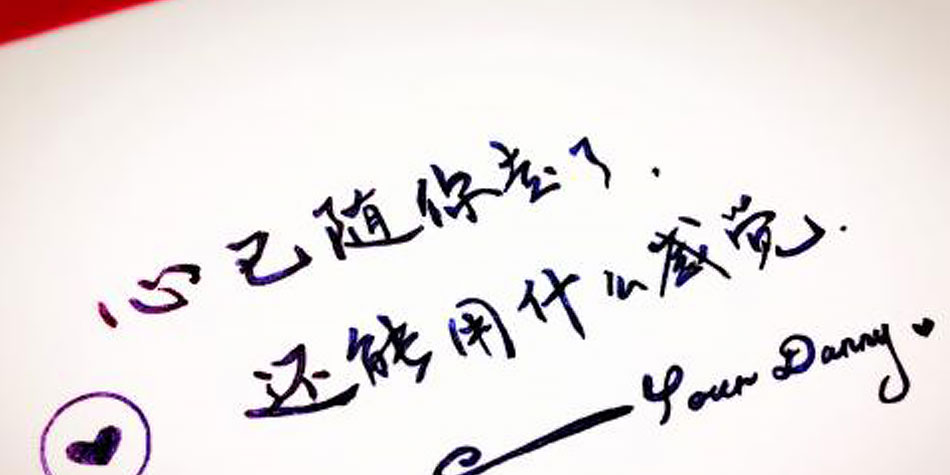 心已随你去了.
还能用什么感觉.
Your Danny